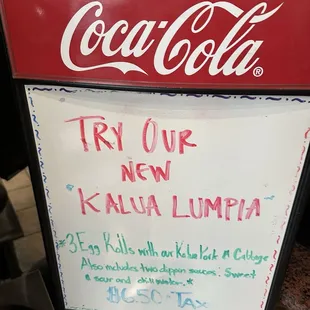 Coca-Cola ®
TRY OUR
NEW
KALUA LUMPIA
*3 Egg Rolls with our Kalua Pork n Cabbage
Also includes two dippin sauces: Sweet
& sour and chili water.*
$6.50 + TAX